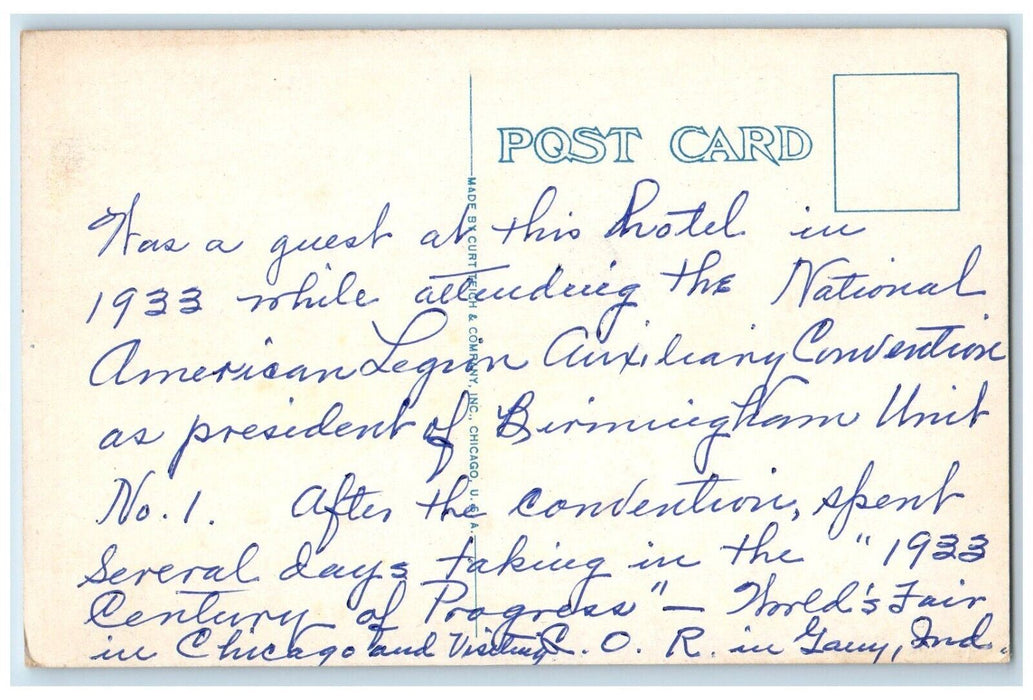 POST CARD
MADE BY CURT TEICH & COMPANY, INC., CHICAGO, U. S. A.
Was a guest at this hotel in
1933 while attending the National
American Legion Auxiliary Convention
as president of Birmingham Unit
No. 1. After the convention, spent
several days taking in the "1933
Century of Progress" — World's Fair
in Chicago and Visiting C. O. R. in Gary, Ind.